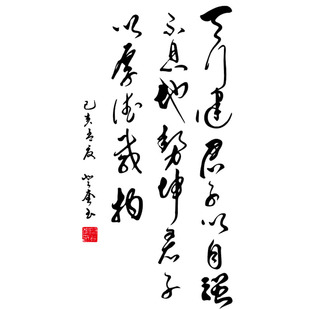 天行健君子以自强
不息地势坤君子
以厚德载物
己亥